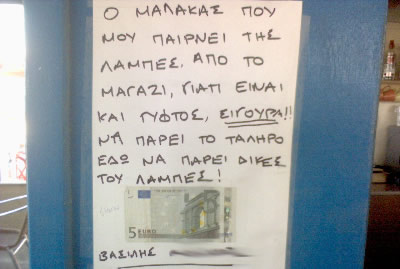 Ο ΜΑΛΑΚΑΣ ΠΟΥ
ΜΟΥ ΠΑΙΡΝΕΙ ΤΗΣ
ΛΑΜΠΕΣ, ΑΠΟ ΤΟ
ΜΑΓΑΖΙ, ΓΙΑΤΙ ΕΙΝΑΙ
ΚΑΙ ΓΥΦΤΟΣ, ΣΙΓΟΥΡΑ!!
ΝΑ ΠΑΡΕΙ ΤΟ ΤΑΛΗΡΟ
ΕΔΩ ΝΑ ΠΑΡΕΙ ΔΙΚΕΣ
ΤΟΥ ΛΑΜΠΕΣ!
5 EURO
ΒΑΣΙΛΗΣ